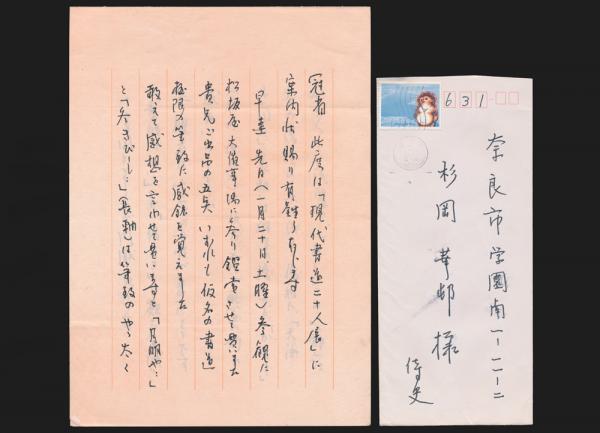 冠省 此度は「現代書道二十人展」に
案内状賜り有難うあります
早速 先日(一月二十日、土曜)参観に
松坂屋 大催事場に参り鑑賞させて貰いました
貴兄ご出品の五点 いずれも仮名の書道
極限の筆致に感銘を覚えました
敢えて感想を言わせて貰いますと「月明や…」
と「冬きびし…」(長軸)は筆致のやゝ太く
631
奈良市学園南一-一一-二
杉岡華邨様
侍史